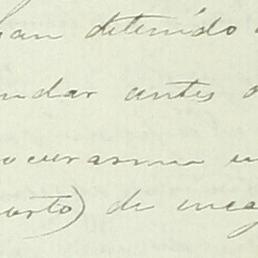 han detenido
ndar antes
ocurarme u
uarto) de